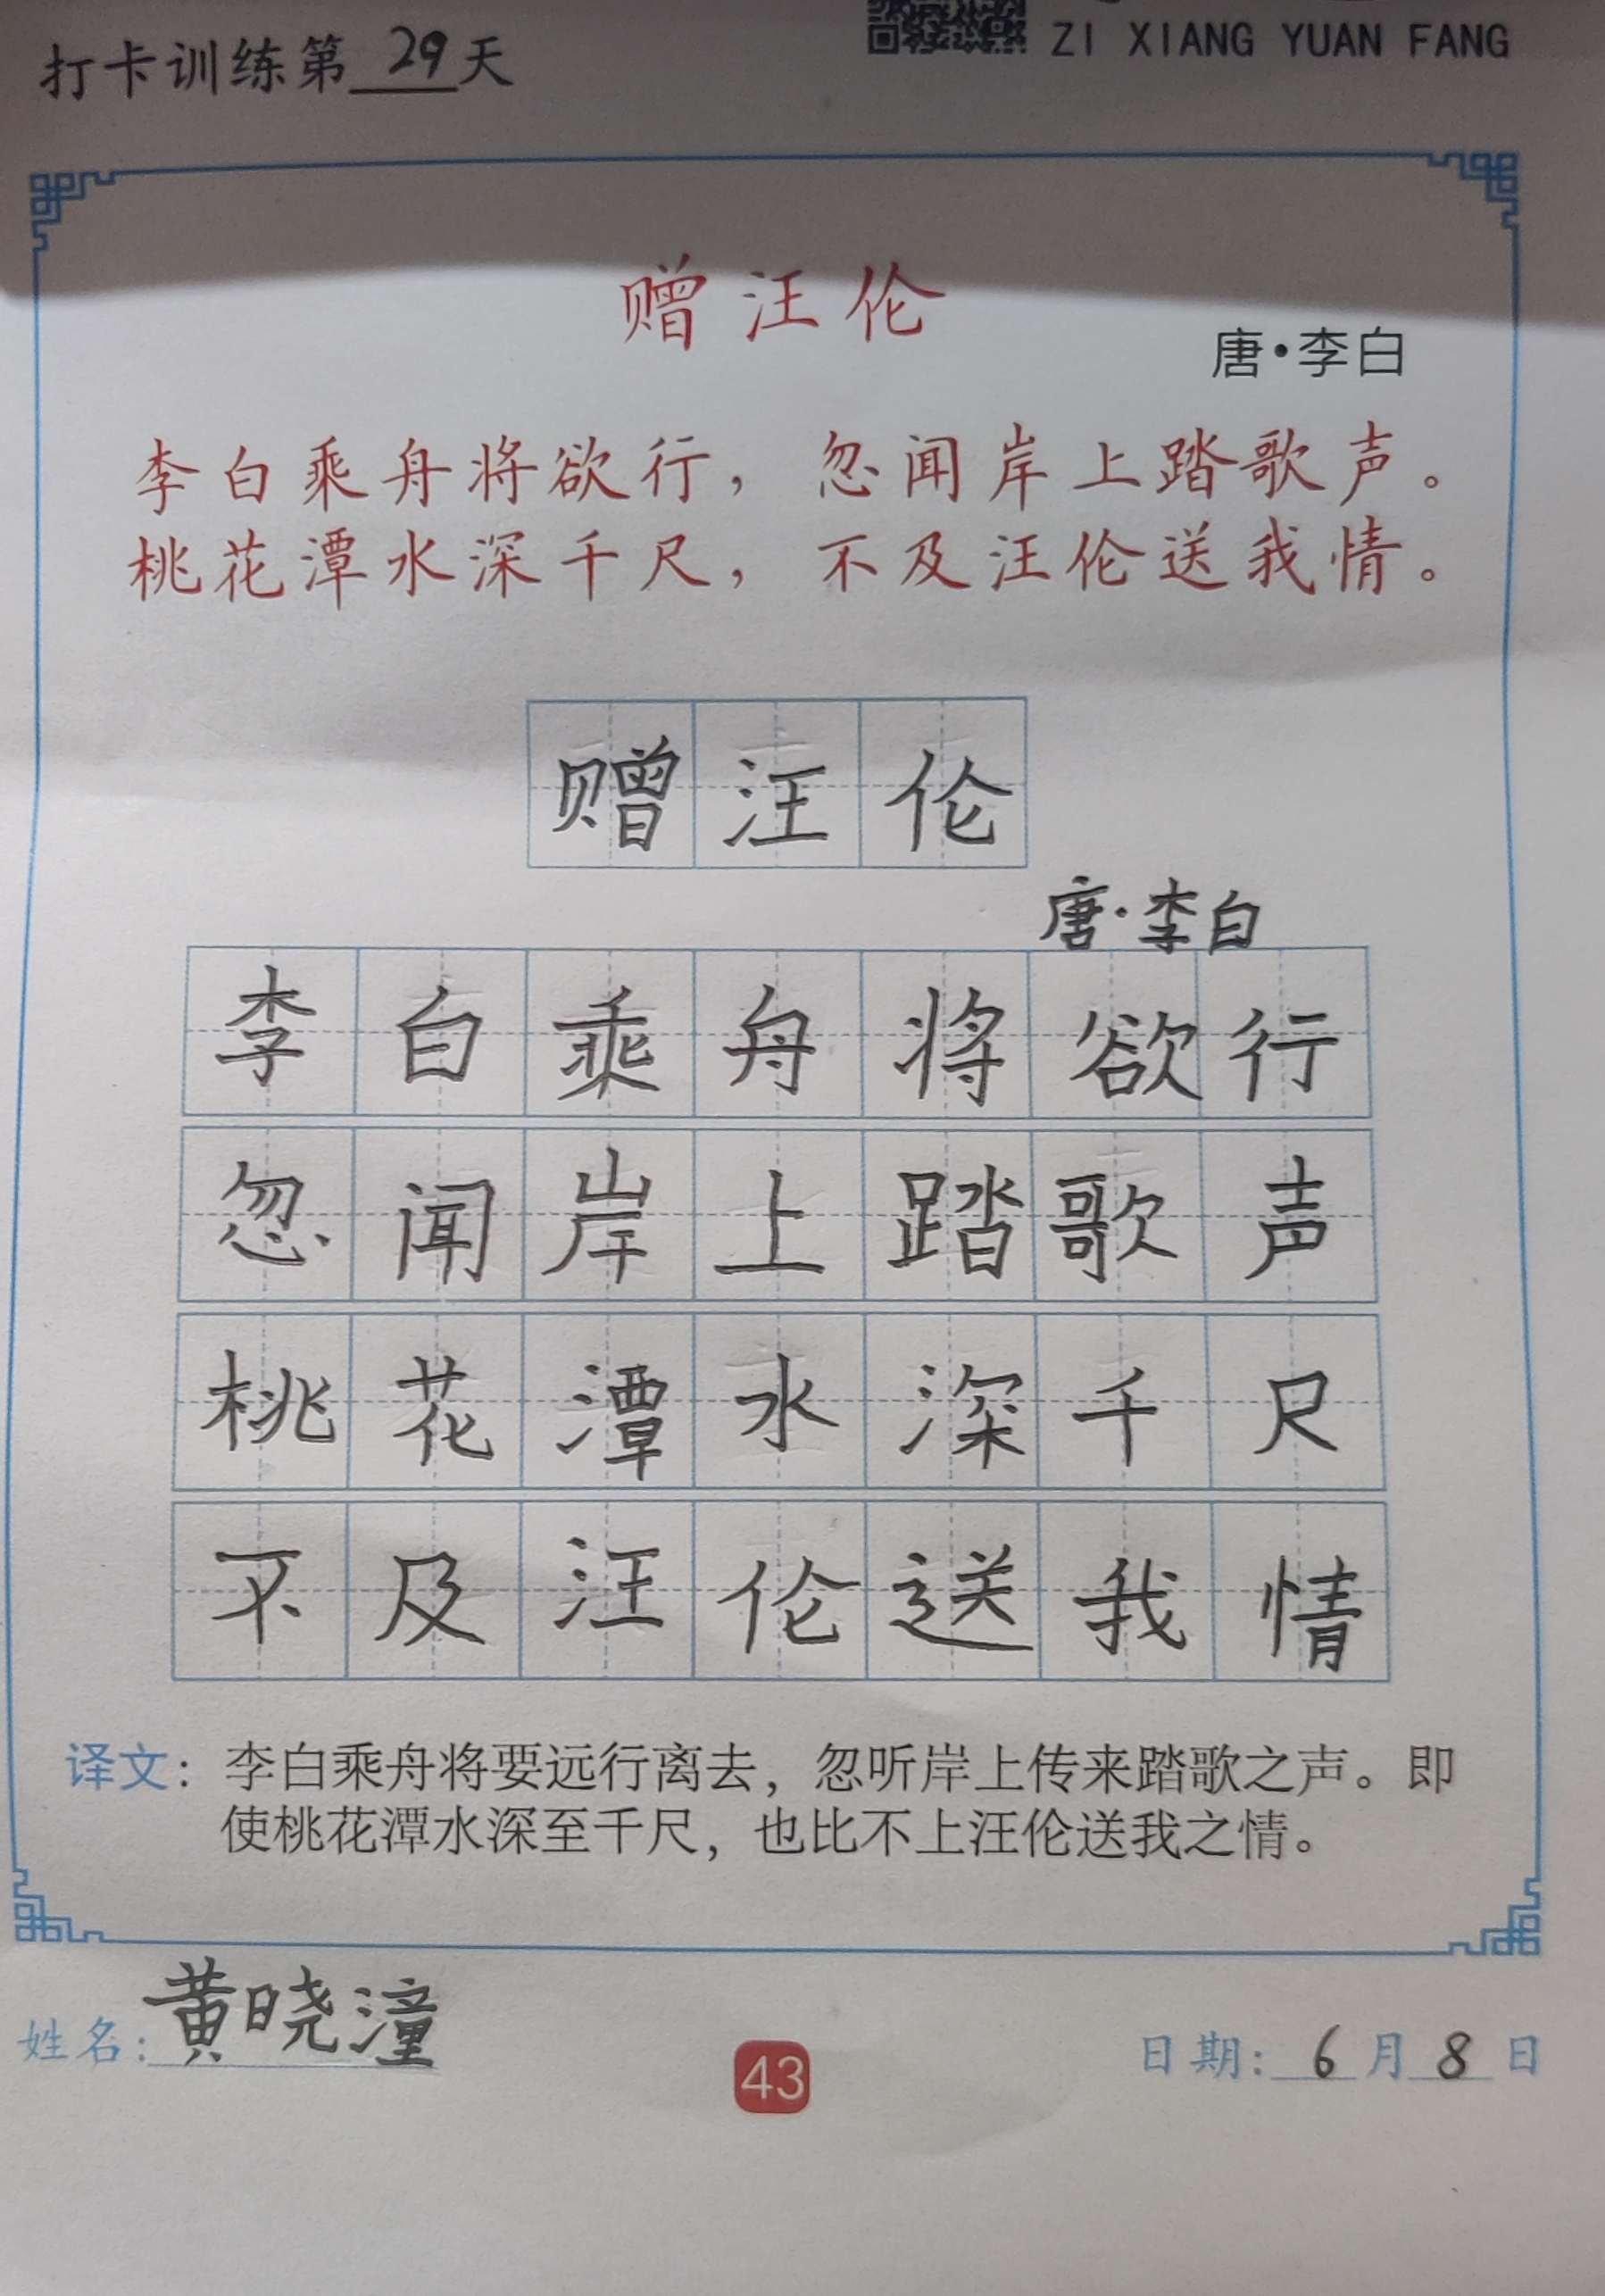 ZI XIANG YUAN FANG
打卡训练第29天
赠汪伦
唐·李白
李白乘舟将欲行，忽闻岸上踏歌声。
桃花潭水深千尺，不及汪伦送我情。
赠汪伦
唐·李白
李白乘舟将欲行
忽闻岸上踏歌声
桃花潭水深千尺
不及汪伦送我情
译文：李白乘舟将要远行离去，忽听岸上传来踏歌之声。即
使桃花潭水深至千尺，也比不上汪伦送我之情。
姓名：黄晓潼
43
日期：6月8日